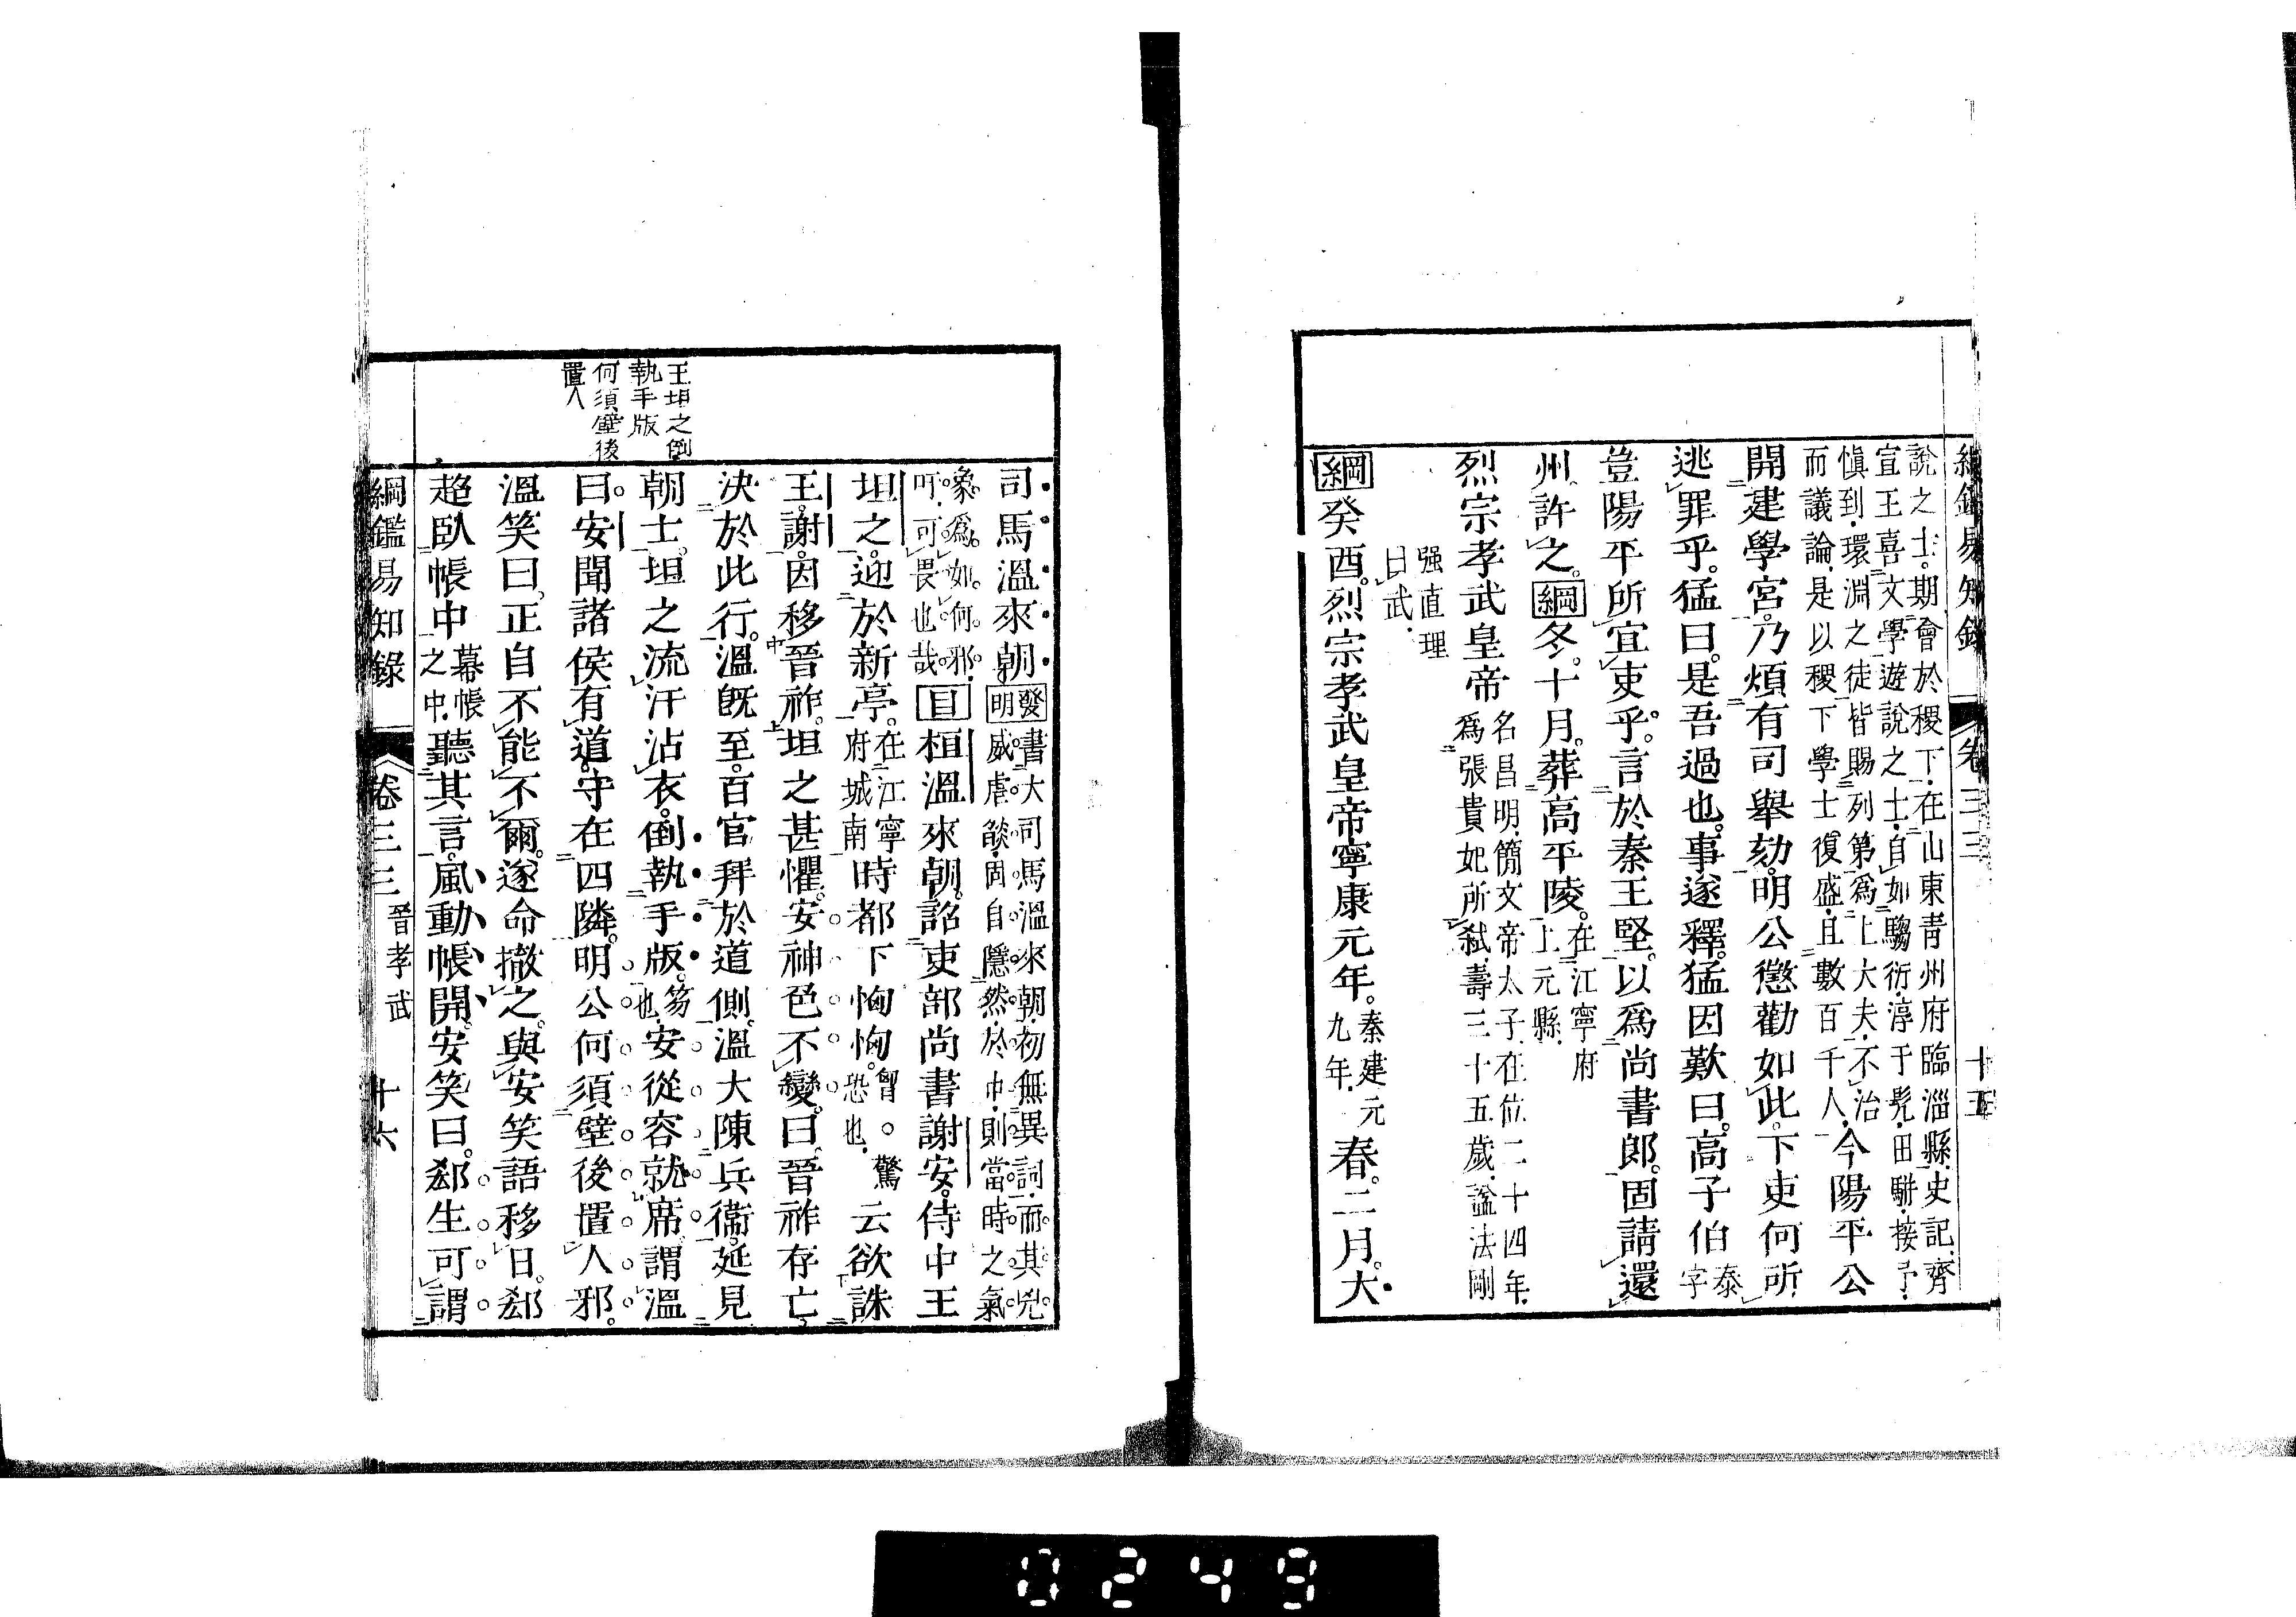 綱鑑易知錄 卷三三 十五
說之士期會於稷下在山東青州府臨淄縣史記齊
宣王喜文學遊說之士自如騶衍淳于髡田駢接予
慎到環淵之徒皆賜列第爲上大夫不治
而議論是以稷下學士復盛且數百千人今陽平公
開建學宮乃煩有司舉劾明公懲勸如此下吏何所
逃罪乎猛曰是吾過也事遂釋猛因歎曰高子伯泰字
豈陽平所宜吏乎言於秦王堅以爲尚書郎固請還
州許之綱冬十月葬高平陵在江寧府上元縣
烈宗孝武皇帝名昌明簡文帝太子在位二十四年
爲張貴妃所弒壽三十五歲諡法剛
强直理
曰武
綱癸酉烈宗孝武皇帝寧康元年秦建元九年春二月大
司馬溫來朝發明書大司馬溫來朝初無異詞而其兇
威虐燄固自隱然於中則當時之氣
象爲如何邪
吁可畏也哉目桓溫來朝詔吏部尚書謝安侍中王
坦之迎於新亭在江寧府城南時都下恟恟匈曾。驚恐也云欲誅
王謝因移晉祚坦之甚懼安神色不變曰晉祚存亡
決於此行溫既至百官拜於道側溫大陳兵衞延見
朝士坦之流汗沾衣倒執手版笏也安從容就席謂溫
曰安聞諸侯有道守在四隣明公何須壁後置人邪
溫笑曰正自不能不爾遂命撤之與安笑語移日郄
超臥帳中幕帳之中聽其言風動帳開安笑曰郄生可謂
王坦之倒
執手版
何須壁後
置人
綱鑑易知錄 卷三三 晉孝武 十六
0249